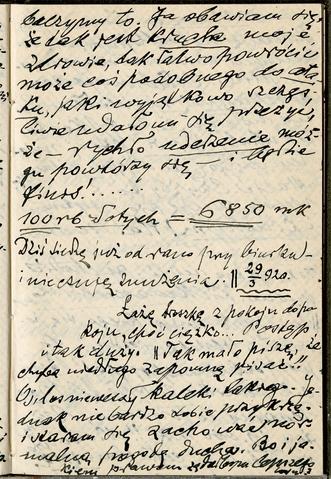 baczymy to. Ja obawiam się,
że tak jest krucho moje
zdrowie, tak łatwo powrócić
może coś podobnego do ata-
ku, jaki wyjątkowo szczęś-
liwie udało mi się przeżyć,
że — rychło uderzenie móz-
gu powtórzy się — i będzie
finis!......
100 rb złotych = 6850 mk
Dziś siedzę już od rana przy biurku
i nie czuję znużenia. || 29/3 920.
Łażę troszkę z pokoju do po-
koju, choć ciężko... Postęp
i tak duży. "Tak mało piszę, że
chyba niedługo zapomnę pisać."
Oj, los niewesały kaleki takiego. Je-
dnak nie bardzo sobie przykrzę
i staram się zachować nor-
malną pogodę ducha. Bo i ja-
kiem prawem